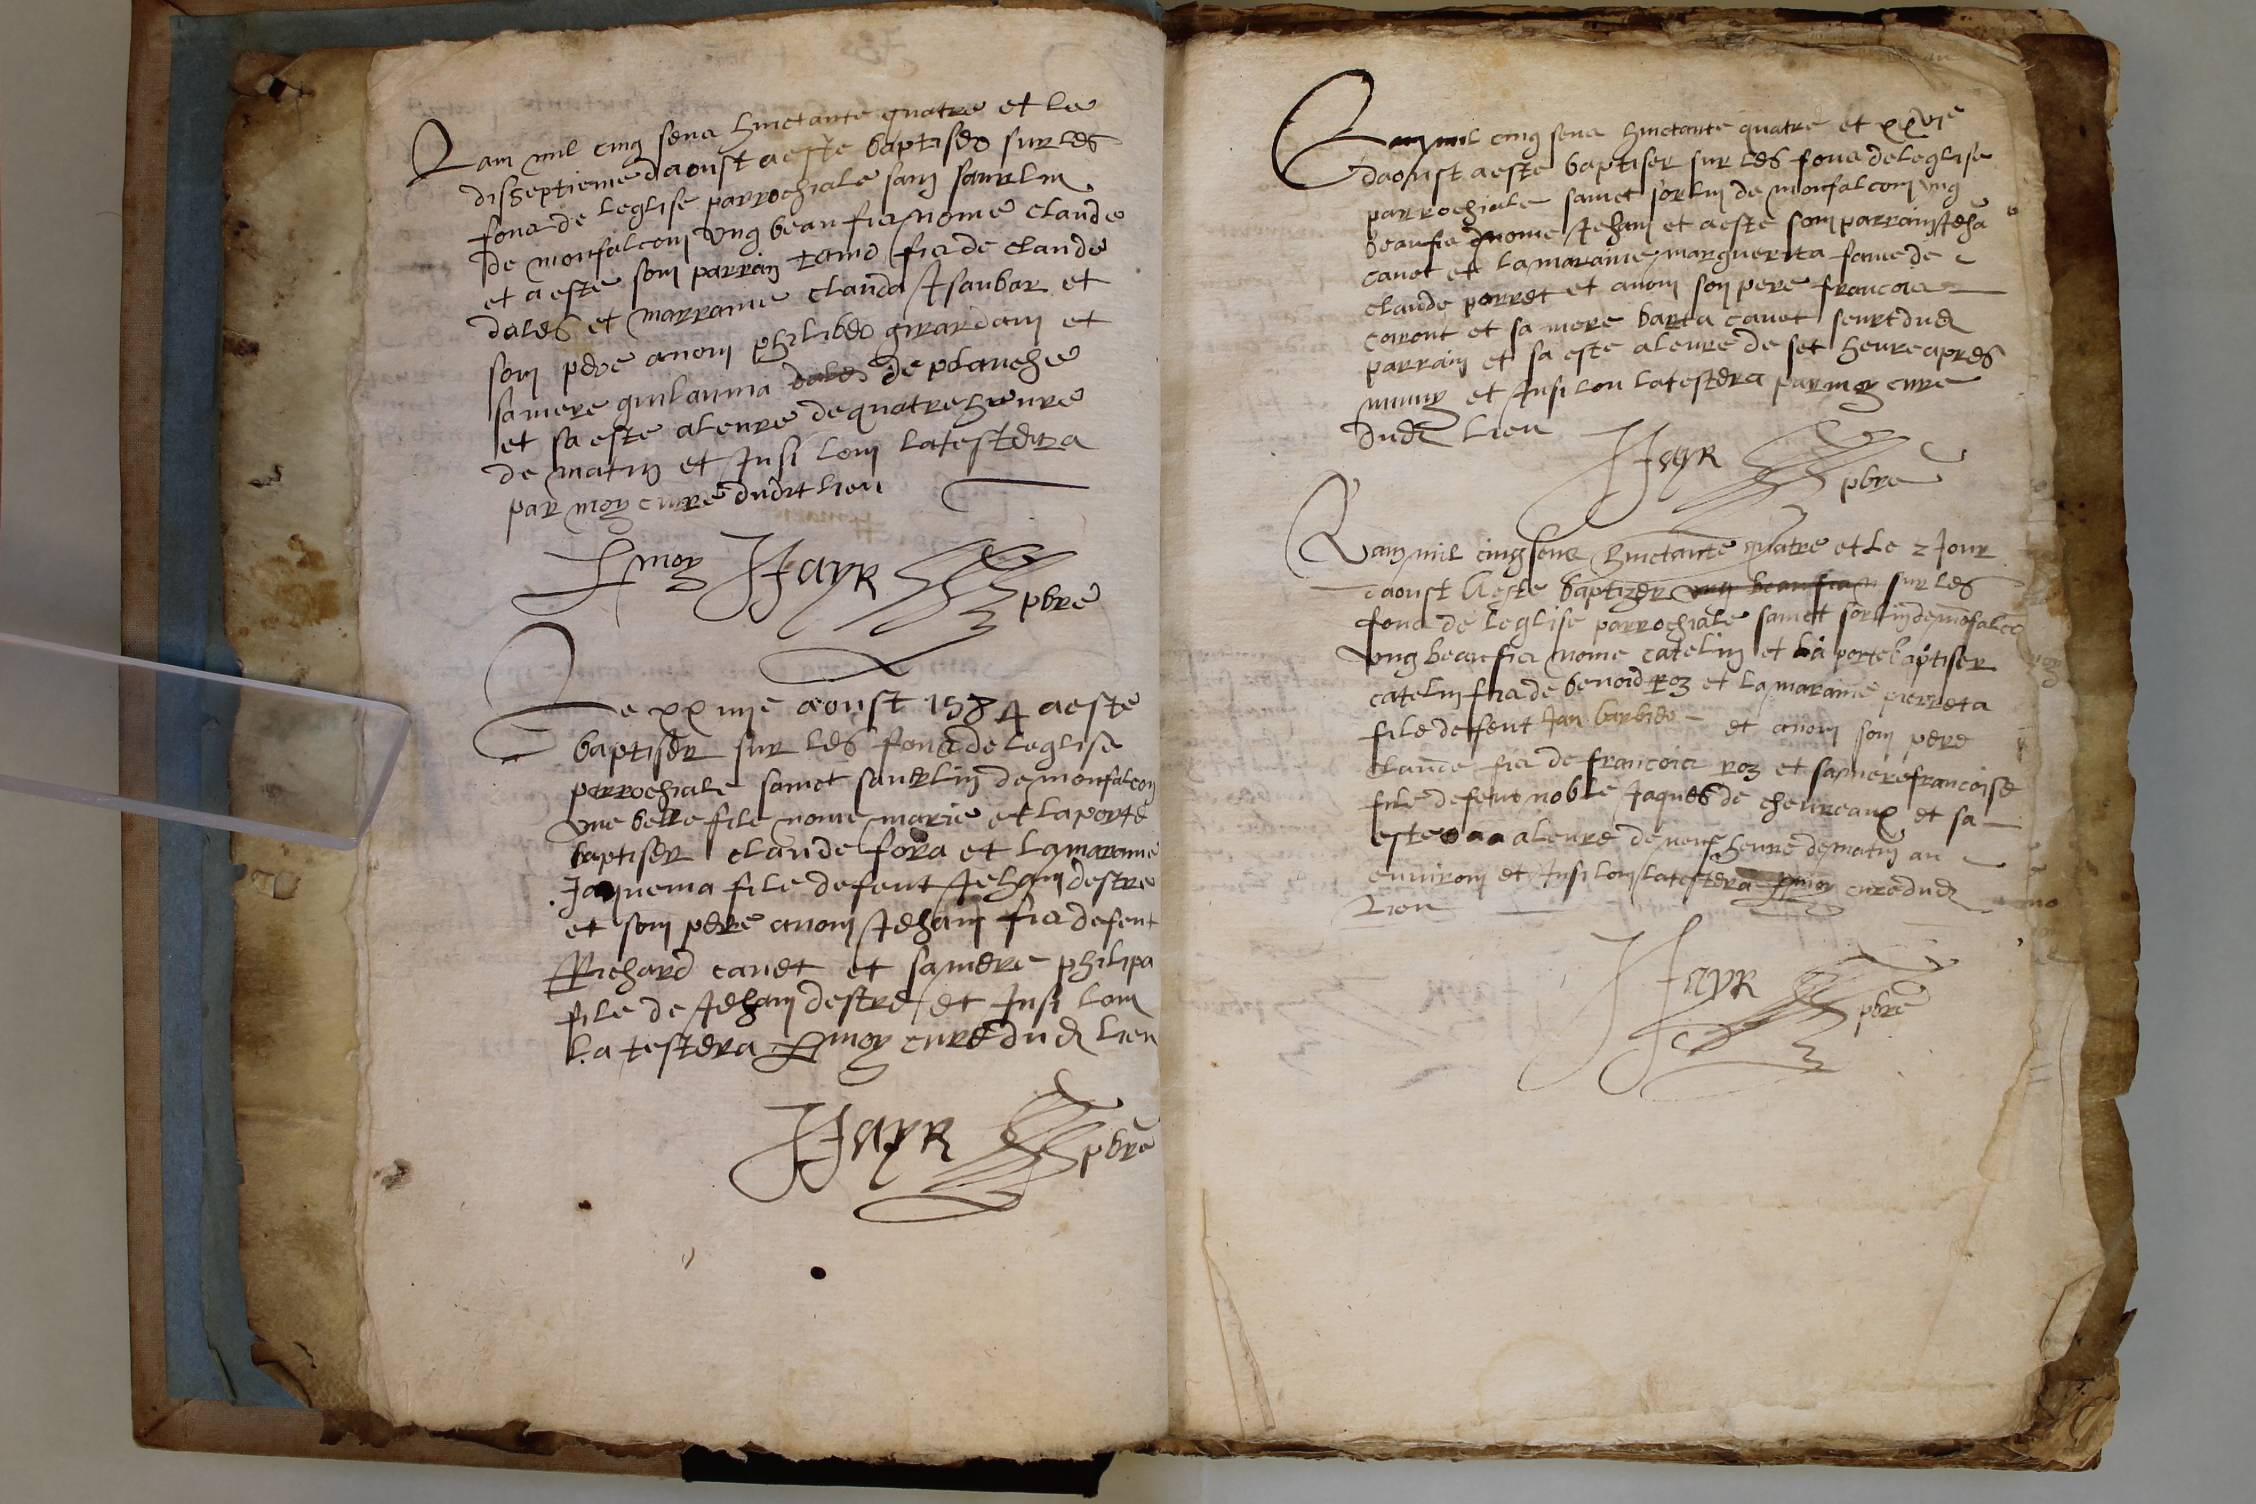 Lam mil cinq sens huictante quatre et le
disseptieme daoust aeste baptiser sur les
fons de leglise parrochiale sain saurlin
de monfalcom ung beau fis nome claude
et a este som parrain fis de claude
et marraine clauda Jsanbar et
som pere anom philiber girardam et
samere guilauma de planche
et sa este aleure de quatre heure
de matin et Jnsi lom latestera
par moy cure dudit lieu
pmoy JFayR
pbre
Le xxiiiie aoust 1584 aeste
baptiser sur les fons de leglise
parrochiale sainct saurlin de monfalcom
une belle file nome marie et la porte
baptiser claude fora et la maraine
Jaquema file defeut Jeham destre
et som pere anom Jeham fis defeut
Richard canet et samere philipa
file de Jeham destre et Jnsi lom
latestera pmoy cure dud lieu
JFayR pbre
Lam mil cinq sens huictante quatre et xxvie
daoust aeste baptiser sur les fons deleglise
parrochiale sainct sorlin de monfalcom ung
beau fis nome Jeham et aeste som parrain Jeha
canet et la maraine marguerita fame de
claude perret et anom som pere francois
coiront et sa mere barta canet seurt dud
parrain et sa este aleure de set heure apres
minuy et Jnsi lou latestera par moy cure
dud lieu
JFayR
pbre
Lam mil cinq sens huictante quatre et Le 2 Jour
daoust Aeste baptizer ung beau fis sur les
fons de leglise parrochiale sainct sorlin de mofalco
ung beau fis nome catelin et la porte baptiser
catelin fis de benoid roz et la maraine pierreta
file defeut Jan barbier et anom som pere
claude fis de francois roz et samere francoise
file defeut noble Jaques de chevreaux et sa
este aleure de neuf heure dematin au
environ et Jnsi lom latestera pmoy cure dud
Lieu
JFayR
pbre